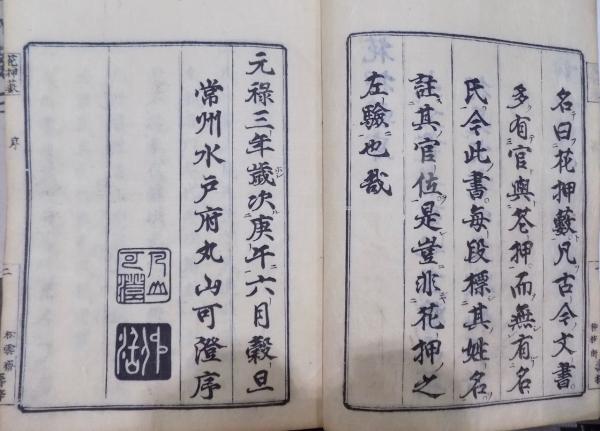 名曰花押藪凡古今文書
多有官與花押而無有名
氏今此書毎段標其姓名
註其官位是豈非花押之
左驗也哉
元祿三年歲次庚午六月穀旦
常州水戸府丸山可澄序
花押藪
序
二